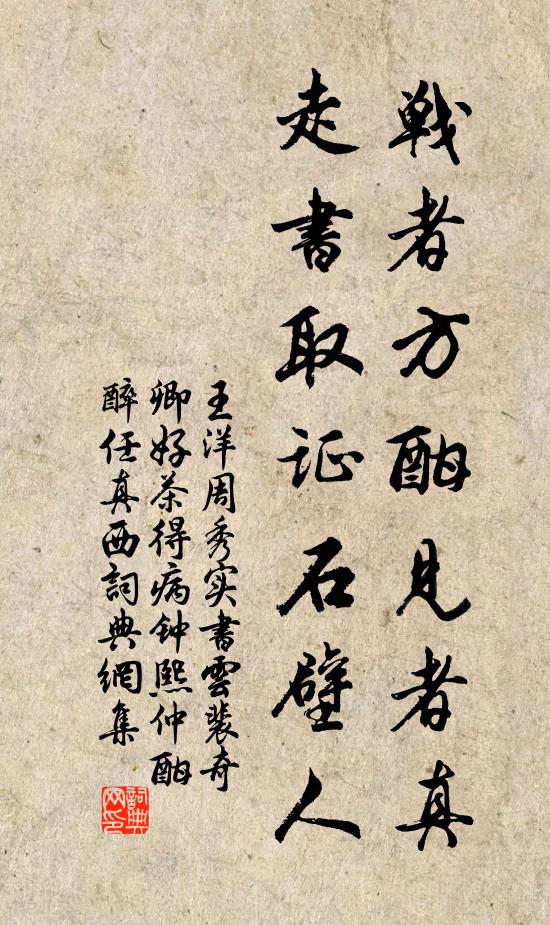 戦者方酣見者真
走書取证石壁人
王洋周秀实書雲裴奇
卿好茶得病钟熙仲酣
醉任真西詞典網集
詞典
网印